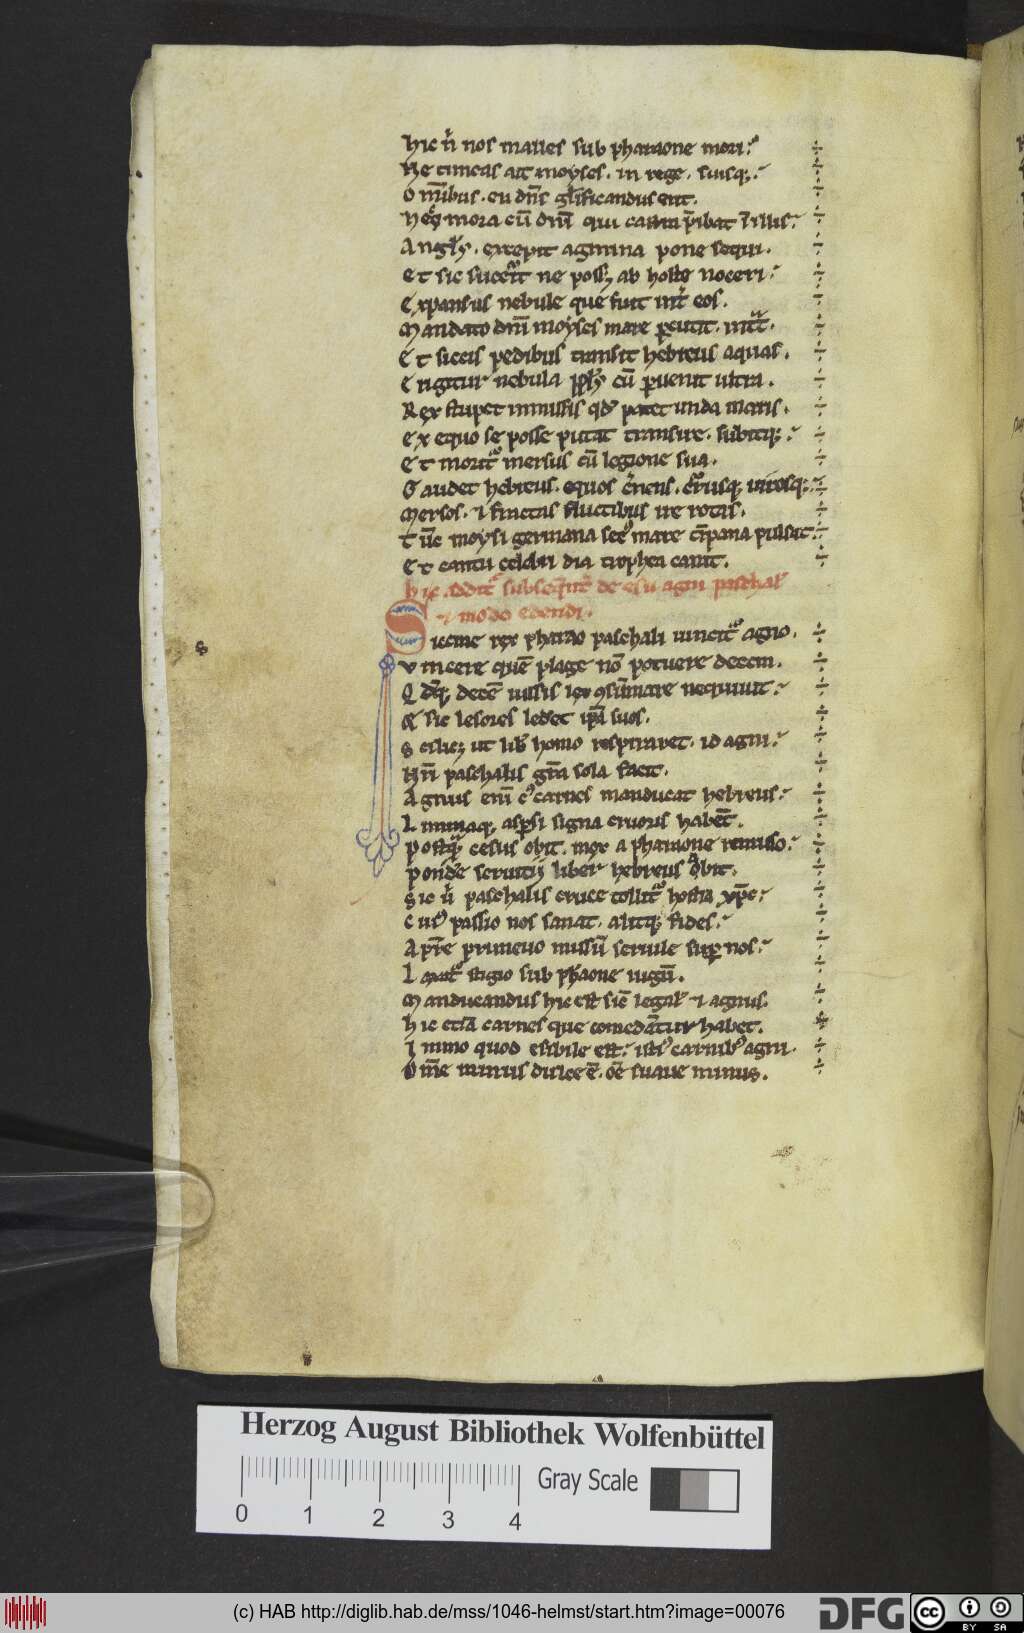 hic n̄ nos malles sub pharaone mori
Ne timeas ait moyses. in rege. suisq;
Omībus. eu dn̄s gl̄ificandus erit.
Angl̄s. excepit agmina pone sequi.
Et sic succēit ne poss; ab hoste noceri
Expansus nebule que fuit int̄ eos.
Mandato dn̄i moyses mare ꝑcutit. intᷓt.
Et siccis pedibus transit hebreus aquas.
Erigitur nebula ppl̄s cū ꝑuenit ultra.
Rex stupet inmissis qd̄ patet unda maris.
Ex equo se posse putat transire. subitq;
Et moritᷓ mersus cū legione sua.
Gaudet hebreus. equos c̄nens. c̄rusq; uirosq;
Mersos. ⁊ functus fluctibus ire rotis.
Tūc moysi germana sec̄ mare tīpana pulsat
Et cantu celebri dia trophea canit.
hic additᷓ subseq̄nt̄ de esu agni paschal̄
⁊ modo edendi.
Siccine rex pharao paschali uincitᷓ agno.
Vincere quē plage nō potuere decem.
Q decē iussis lex ꝯsūmare nequiuit
sic lesores ledet ip̄a suos.
Scilic; ut lib̄ homo respiraret. id agni
Hn̄ paschalis gr̄a sola facit.
Agnus eni carnes manducat hebreus
Liminaq; asꝑsi signa cruoris habēt.
Postq̄ cesus obit. mox a pharaone remisso
Pond̄e seruitij liber hebreus abit.
Sic u̇ paschalis cruce tollitᷓ hostia xp̄c
Cuiꝰ passio nos sanat. alitq; fides.
A pr̄e primeuo missū seruile suꝑ nos
L stigio sub phaone iugū.
Manducandus hic est sic̄ legal̄ ⁊ agnus.
hic etiā carnes que comedātur habet.
Immo quod esibile est. istiꝰ carnibꝰ agni.
Om̄e minus dulce ē. oē suaue minus.
s
Herzog August Bibliothek Wolfenbüttel
0 1 2 3 4
Gray Scale
(c) HAB http://diglib.hab.de/mss/1046-helmst/start.htm?image=00076
DFG
cc BY SA